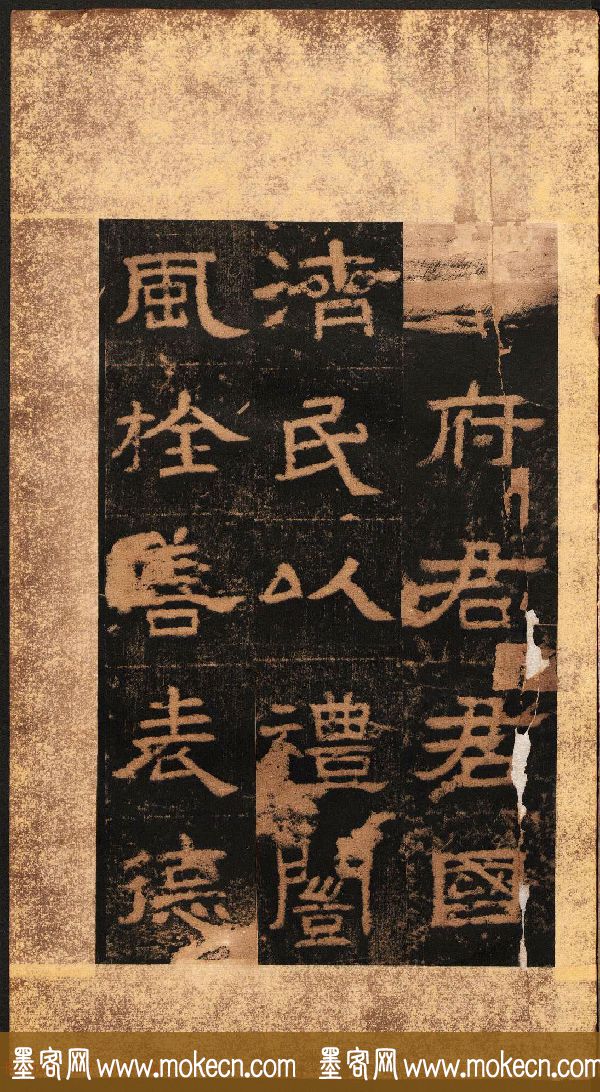 府君君國
濟民以禮闓
風栓善表德
墨客网 www.mokecn.com 墨客网 www.mokecn.com